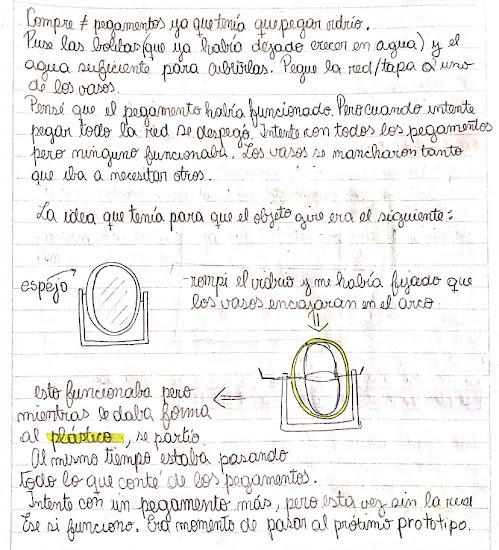 Compre ≠ pegamentos ya que tenía que pegar vidrio.
Puse las bolitas (que ya había dejado crecer en agua) y el
agua suficiente para cubrirlas. Pegue la red/tapa a uno
de los vasos.
Pensé que el pegamento había funcionado. Pero cuando intente
pegar todo la red se despegó. Intente con todos los pegamentos
pero ninguno funcionaba. Los vasos se mancharon tanto
que iba a necesitar otros.
La idea que tenía para que el objeto gire era el siguiente:
espejo
-rompi el vidrio y me había fijado que
los vasos encajaran en el arco.
esto funcionaba pero
mientras le daba forma
al plástico, se partio.
Al mismo tiempo estaba pasando
todo lo que conté de los pegamentos.
Intente con un pegamento más, pero esta vez sin la red.
Ese si funciono. Era momento de pasar al prótimo prototipo.